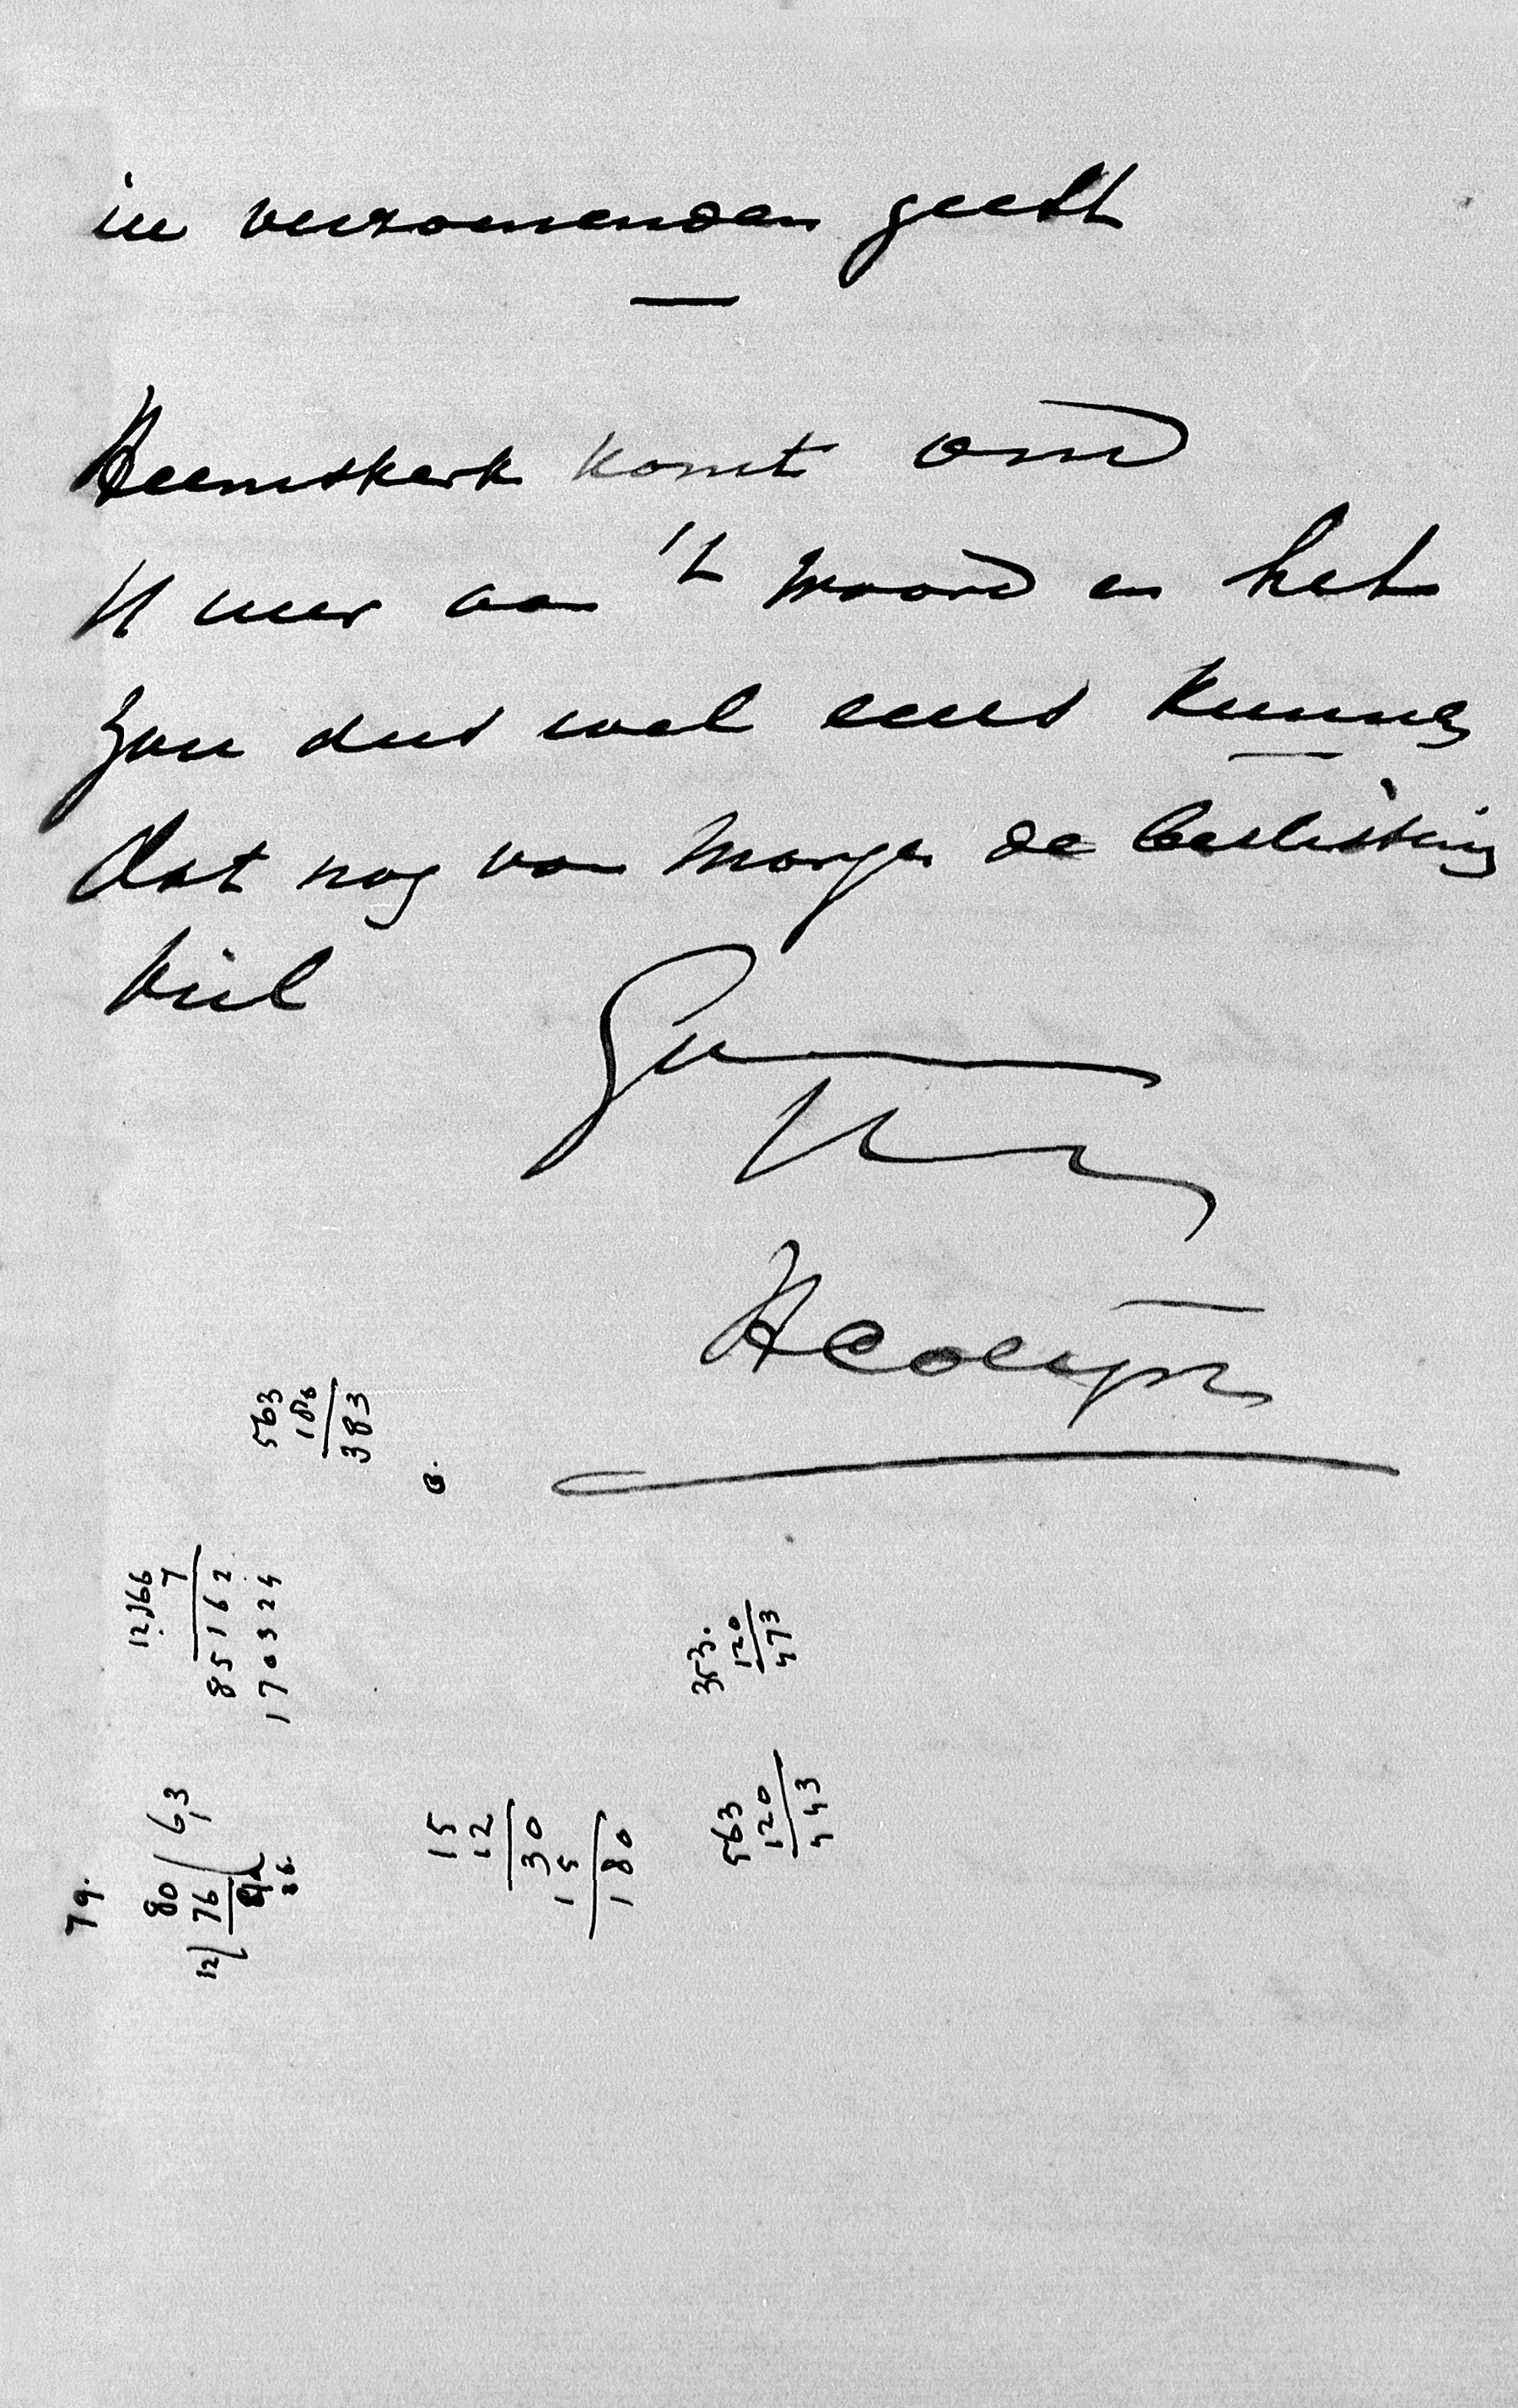 in verzoenenden geest
Heemskerk komt om
11 uur aan 't woord en het
zou dus wel eens kunnen
dat nog van morgen de beslissing
viel
HColijn
563
180
383
12,166
7
85162
170324
353.
120
473
79.
80
76
63
12
15
12
30
15
180
563
120
443